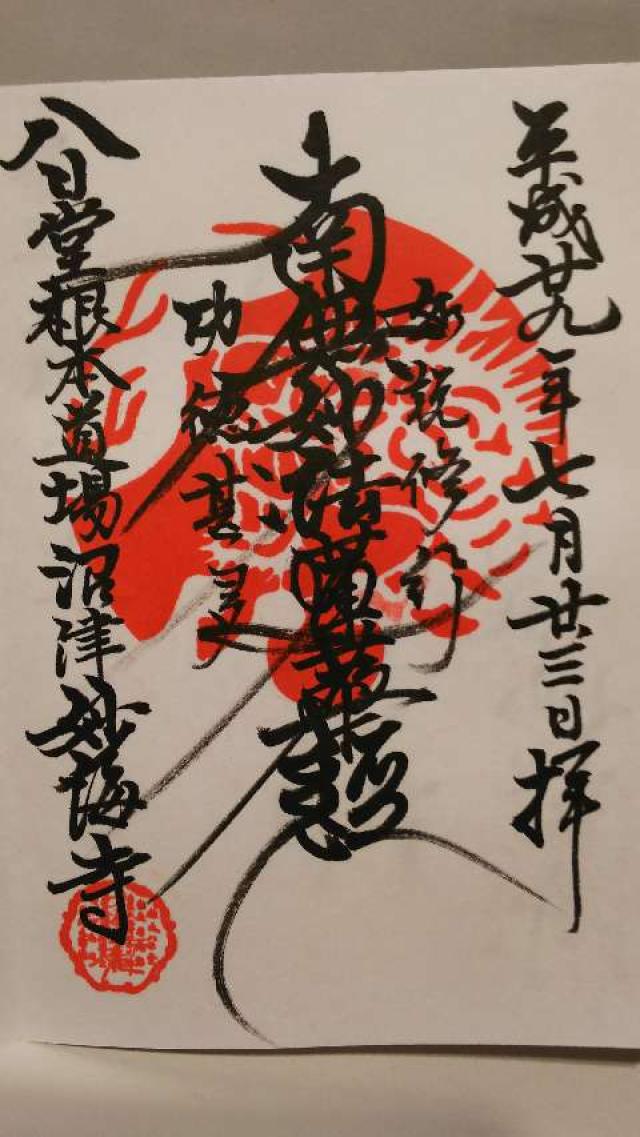 平成廿九年七月廿三日拝
如説修行
南無妙法蓮華経
功徳甚多
八日堂根本道場沼津妙海寺